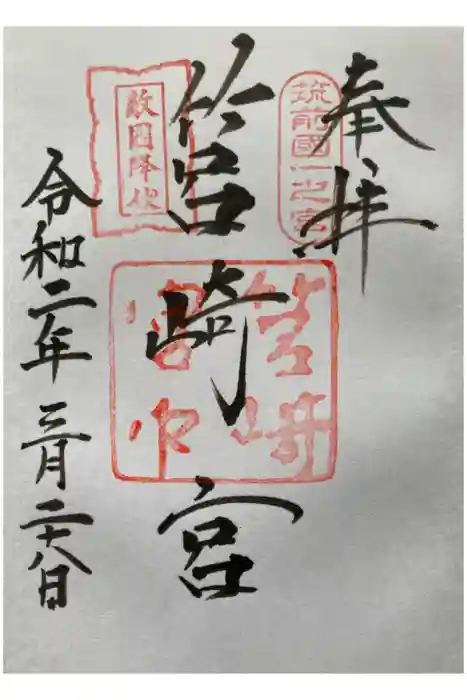 奉拝
筑前國一之宮
筥崎宮
筥崎
宮印
敵國降伏
令和二年三月二十八日